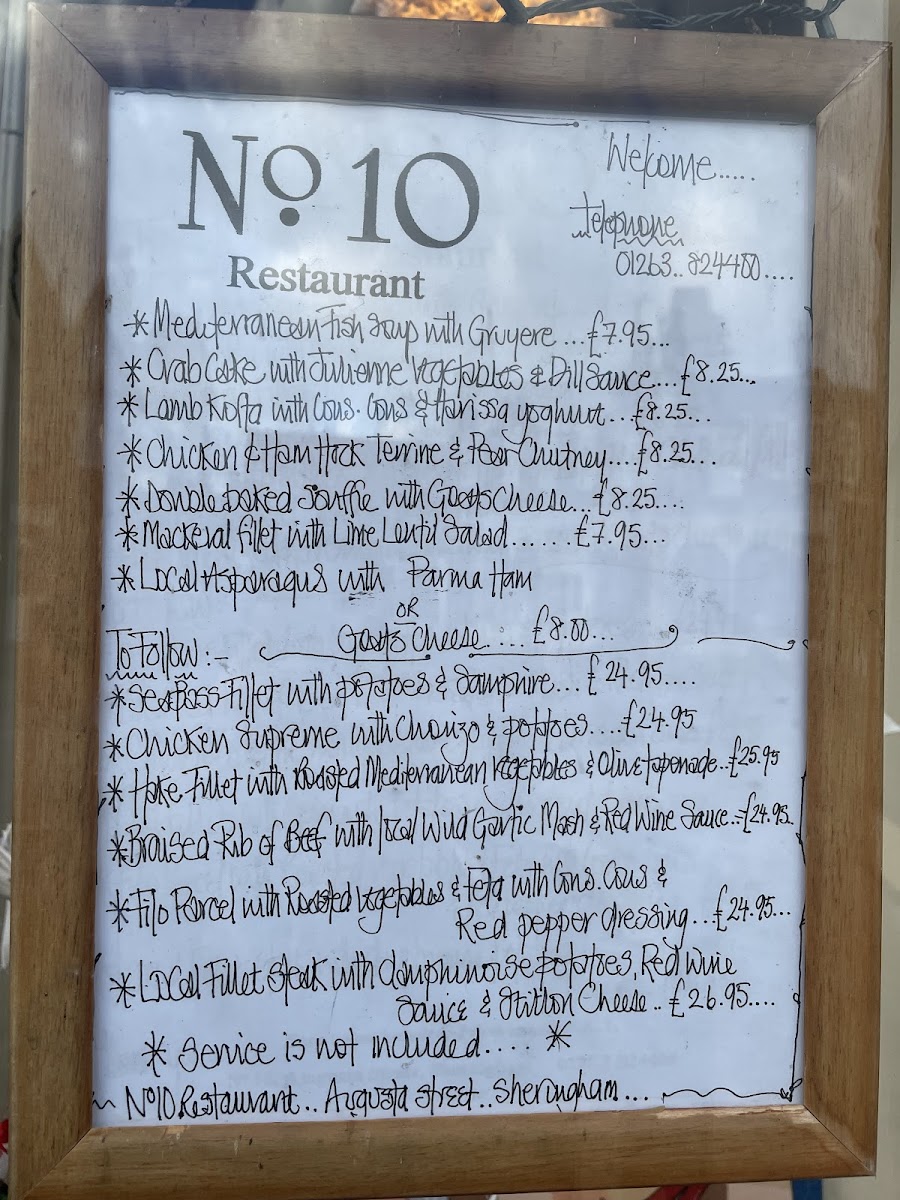 Nº 10
Restaurant
Welcome.....
Telephone
01263..824400....
*Mediterranean Fish Soup with Gruyere...£7.95...
*Crab Cake with Julienne Vegetables & Dill Sauce....£8.25...
*Lamb Kofta with Cous.Cous & Harissa yoghurt...£8.25...
*Chicken & Ham Hock Terrine & Pear Chutney....£8.25...
*Double baked Souffle with Goats Cheese...£8.25....
*Mackeral fillet with Lime Lentil Salad......£7.95...
*Local Asparagus with Parma Ham
OR
Goats Cheese....£8.00...
To Follow:-
*Sea Bass Fillet with potatoes & Samphire...£24.95....
*Chicken Supreme with Chorizo & potatoes....£24.95
*Hake Fillet with Roasted Mediterranean Vegetables & Olive tapenade..£25.95
*Braised Rib of Beef with local Wild Garlic Mash & Red Wine Sauce..£24.95..
*Filo Parcel with Roasted Vegetables & Feta with Cous.Cous &
Red pepper dressing...£24.95...
*Local Fillet Steak with dauphinoise potatoes, Red Wine
Sauce & Stilton Cheese..£26.95....
* Service is not included.... *
Nº10 Restaurant.. Augusta street.. Sheringham...